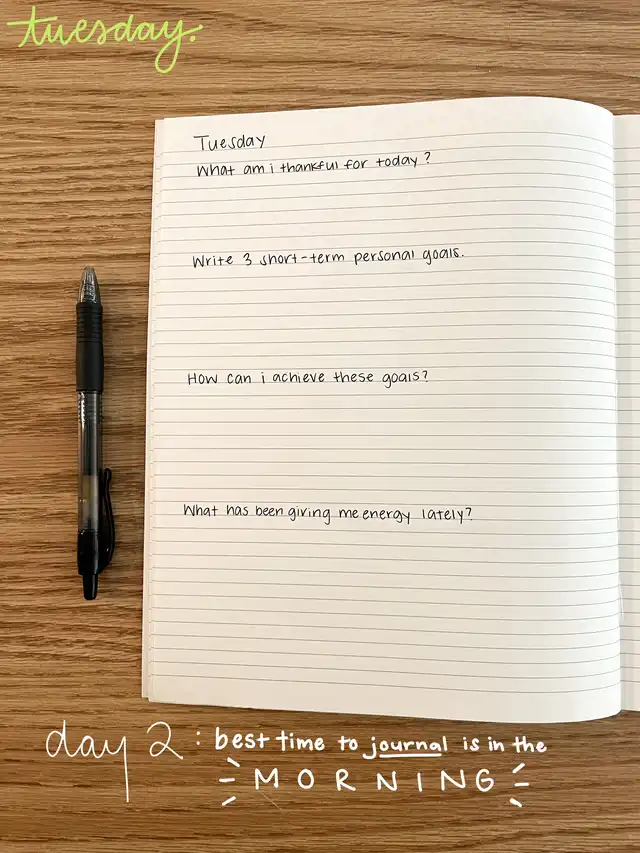 tuesday.
Tuesday
What am i thankful for today?
Write 3 short-term personal goals.
How can i achieve these goals?
What has been giving me energy lately?
day 2: best time to journal is in the
MORNING